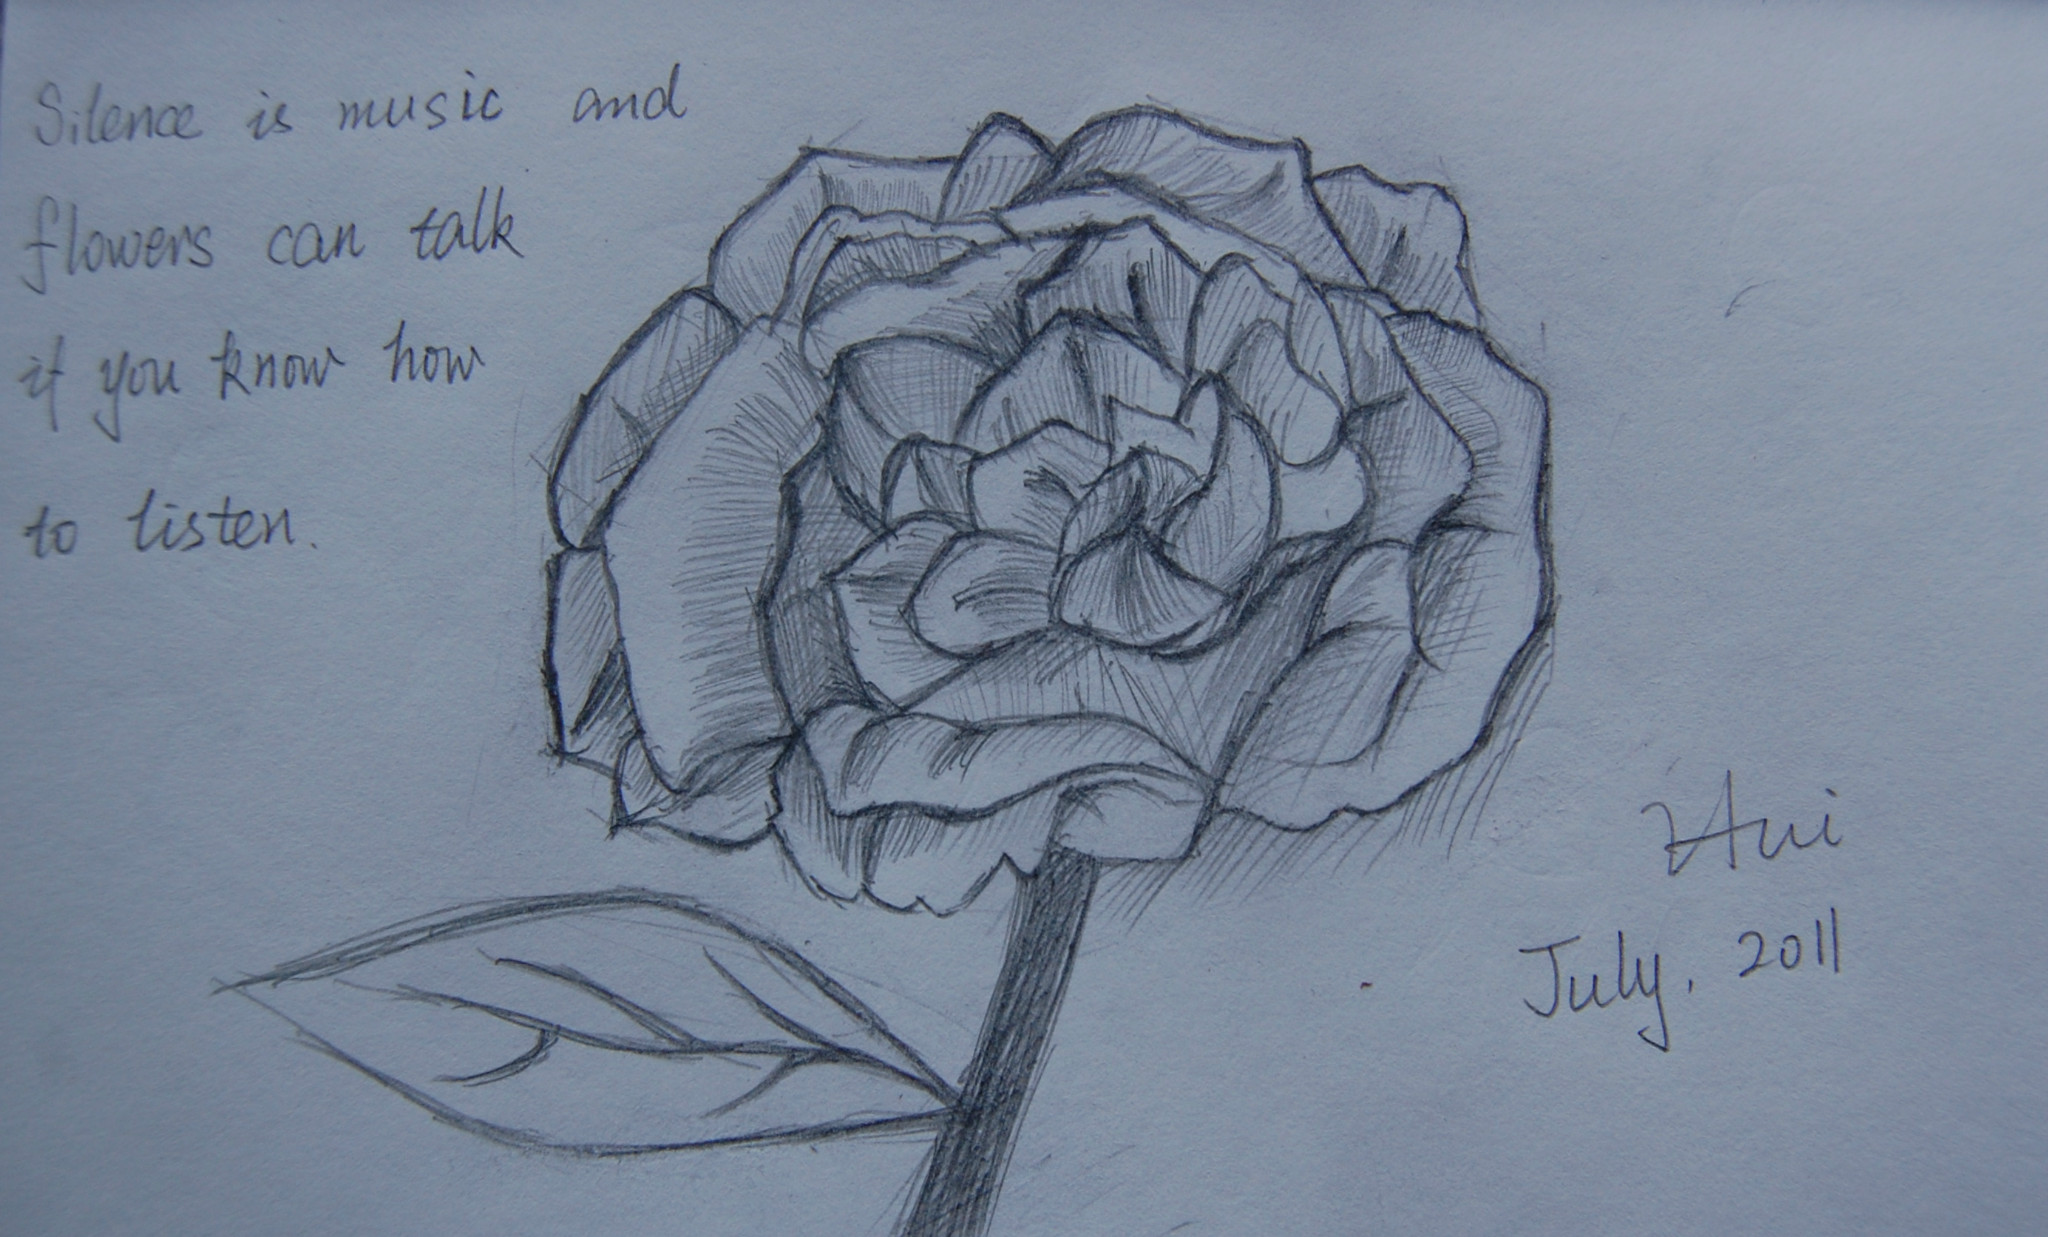 Silence is music and
flowers can talk
if you know how
to listen.
Hui
July, 2011